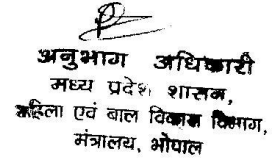 अनुभाग अधिकारी
मध्य प्रदेश शासन,
महिला एवं बाल विकास विभाग,
मंत्रालय, भोपाल